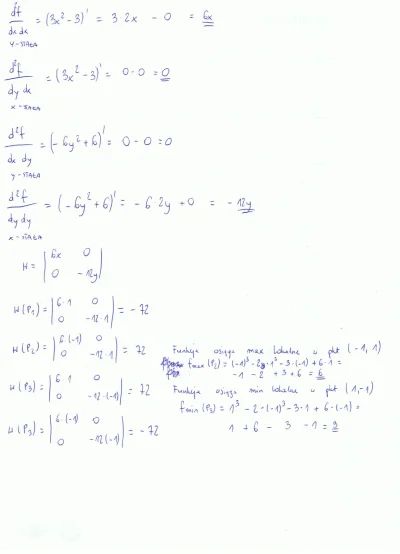 d²f/dx dx = (3x² - 3)' = 3·2x - 0 = 6x
y - stała
d²f/dy dx = (3x² - 3)' = 0 - 0 = 0
x - stała
d²f/dx dy = (-6y² + 6)' = 0 - 0 = 0
y - stała
d²f/dy dy = (-6y² + 6)' = -6·2y + 0 = -12y
x - stała
H = | 6x 0 |
| 0 -12y |
H(P₁) = | 6·1 0 | = -72
| 0 -12·1 |
H(P₂) = | 6·(-1) 0 | = 72 Funkcja osiąga max lokalne w pkt (-1, 1)
| 0 -12·1 | fmax (P₂) = (-1)³ - 2·1³ - 3·(-1) + 6·1 =
-1 - 2 + 3 + 6 = 6
H(P₃) = | 6·1 0 | = 72 Funkcja osiąga min lokalne w pkt (1,-1)
| 0 -12·(-1) | fmin (P₃) = 1³ - 2·(-1)³ - 3·1 + 6·(-1) =
H(P₃) = | 6·(-1) 0 | = -72 1 + 6 - 3 - 1 = 9
| 0 -12(-1) |